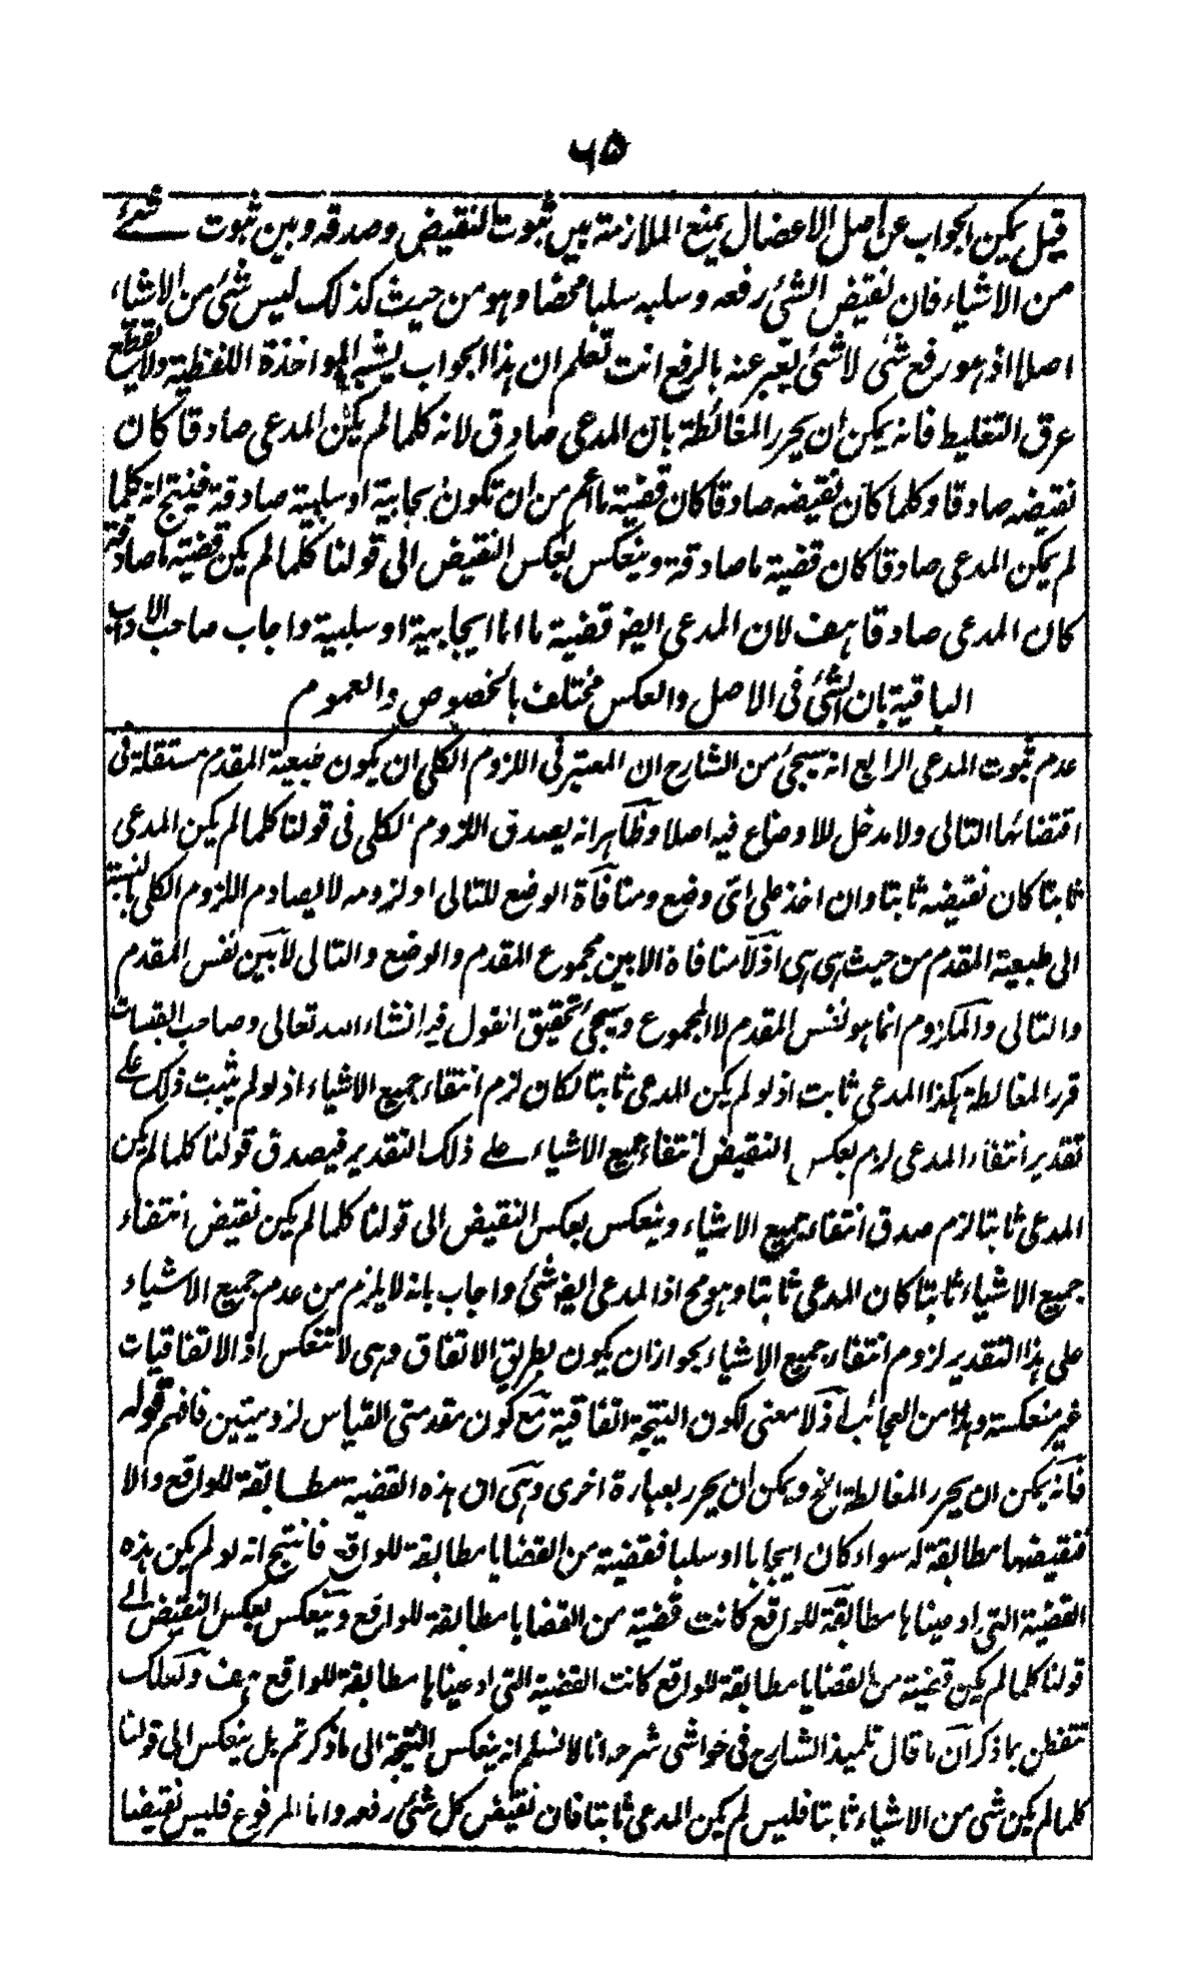 ٦٥
قيل يمكن الجواب عن اصل الاعضال بمنع الملازمة بين ثبوت النقيض وصدقه وبين ثبوت شئ
من الاشياء فان نقيض الشئ رفعه وسلبه سلبا محضا وهو من حيث كذلك ليس شئ من الاشياء
اصلا اذ هو رفع شئ لا شئ يعبر عنه بالرفع انت تعلم ان هذا الجواب يشبه المواخذة اللفظية ولا ينقطع
عرق التغليط فانه يمكن ان يحرر المغالطة بان المدعى صادق لانه كلما لم يكن المدعى صادقا كان
نقيضه صادقا وكلما كان نقيضه صادقا كان قضية ما اعم من ان تكون ايجابية او سلبية صادقة فينتج انه كلما
لم يكن المدعى صادقا كان قضية ما صادقة وينعكس بعكس النقيض الى قولنا كلما لم يكن قضية ما صادقة
كان المدعى صادقا هف لان المدعى ايضا قضية ما اما ايجابية او سلبية واجاب صاحب الاداب
الباقية بان الشئ فى الاصل والعكس مختلف بالخصوص والعموم
عدم ثبوت المدعى الرابع انه سيجئ من الشارح ان المعتبر فى اللزوم الكلى ان يكون طبيعة المقدم مستقلة فى
اقتضائها التالى ولا مدخل للاوضاع فيه اصلا وظاهر انه يصدق اللزوم الكلى فى قولنا كلما لم يكن المدعى
ثابتا كان نقيضه ثابتا وان اخذ على اى وضع ومنافاة الوضع للتالى او لزومه لا يصادم اللزوم الكلى بالنسبة
الى طبيعة المقدم من حيث هى هى اذ لا منافاة الا بين مجموع المقدم والوضع والتالى لا بين نفس المقدم
والتالى والملزوم انما هو نفس المقدم لا المجموع وسيجئ تحقيق القول فيه انشاء الله تعالى وصاحب القبسات
قرر المغالطة هكذا المدعى ثابت اذ لو لم يكن المدعى ثابتا لكان لزم انتفاء جميع الاشياء اذ لو لم يثبت ذلك على
تقدير انتفاء المدعى لزم بعكس النقيض انتفاء جميع الاشياء على ذلك التقدير فيصدق قولنا كلما لم يكن
المدعى ثابتا لزم صدق انتفاء جميع الاشياء وينعكس بعكس النقيض الى قولنا كلما لم يكن نقيض انتفاء
جميع الاشياء ثابتا كان المدعى ثابتا وهو مح اذ المدعى ايضا شئ واجاب بانه لا يلزم من عدم جميع الاشياء
على هذا التقدير لزوم انتفاء جميع الاشياء بجواز ان يكون بطريق الاتفاق وهى لا تنعكس اذ الاتفاقيات
غير منعكسة وهذا من العجائب اذ لا معنى لكون النتيجة اتفاقية مع كون مقدمتى القياس لزوميتين فافهم قوله
فانه يمكن ان يحرر المغالطة الخ ويمكن ان يحرر بعبارة اخرى وهى ان هذه القضية مطابقة للواقع والا
فنقيضها مطابقة له سواء كان ايجابا او سلبا فقضية من القضايا مطابقة للواقع فانتج انه لو لم يكن هذه
القضية التى ادعيناها مطابقة للواقع كانت قضية من القضايا مطابقة للواقع وينعكس بعكس النقيض الى
قولنا كلما لم يكن قضية من القضايا مطابقة للواقع كانت القضية التى ادعيناها مطابقة للواقع هف ولعلك
تتفطن بما ذكر ان ما قال تلميذ الشارح فى حواشى شرحه انا لا نسلم انه ينعكس النتيجة الى ما ذكرتم بل ينعكس الى قولنا
كلما لم يكن شى من الاشياء ثابتا فليس لم يكن المدعى ثابتا فان نقيض كل شئ رفعه واما المرفوع فليس نقيضا